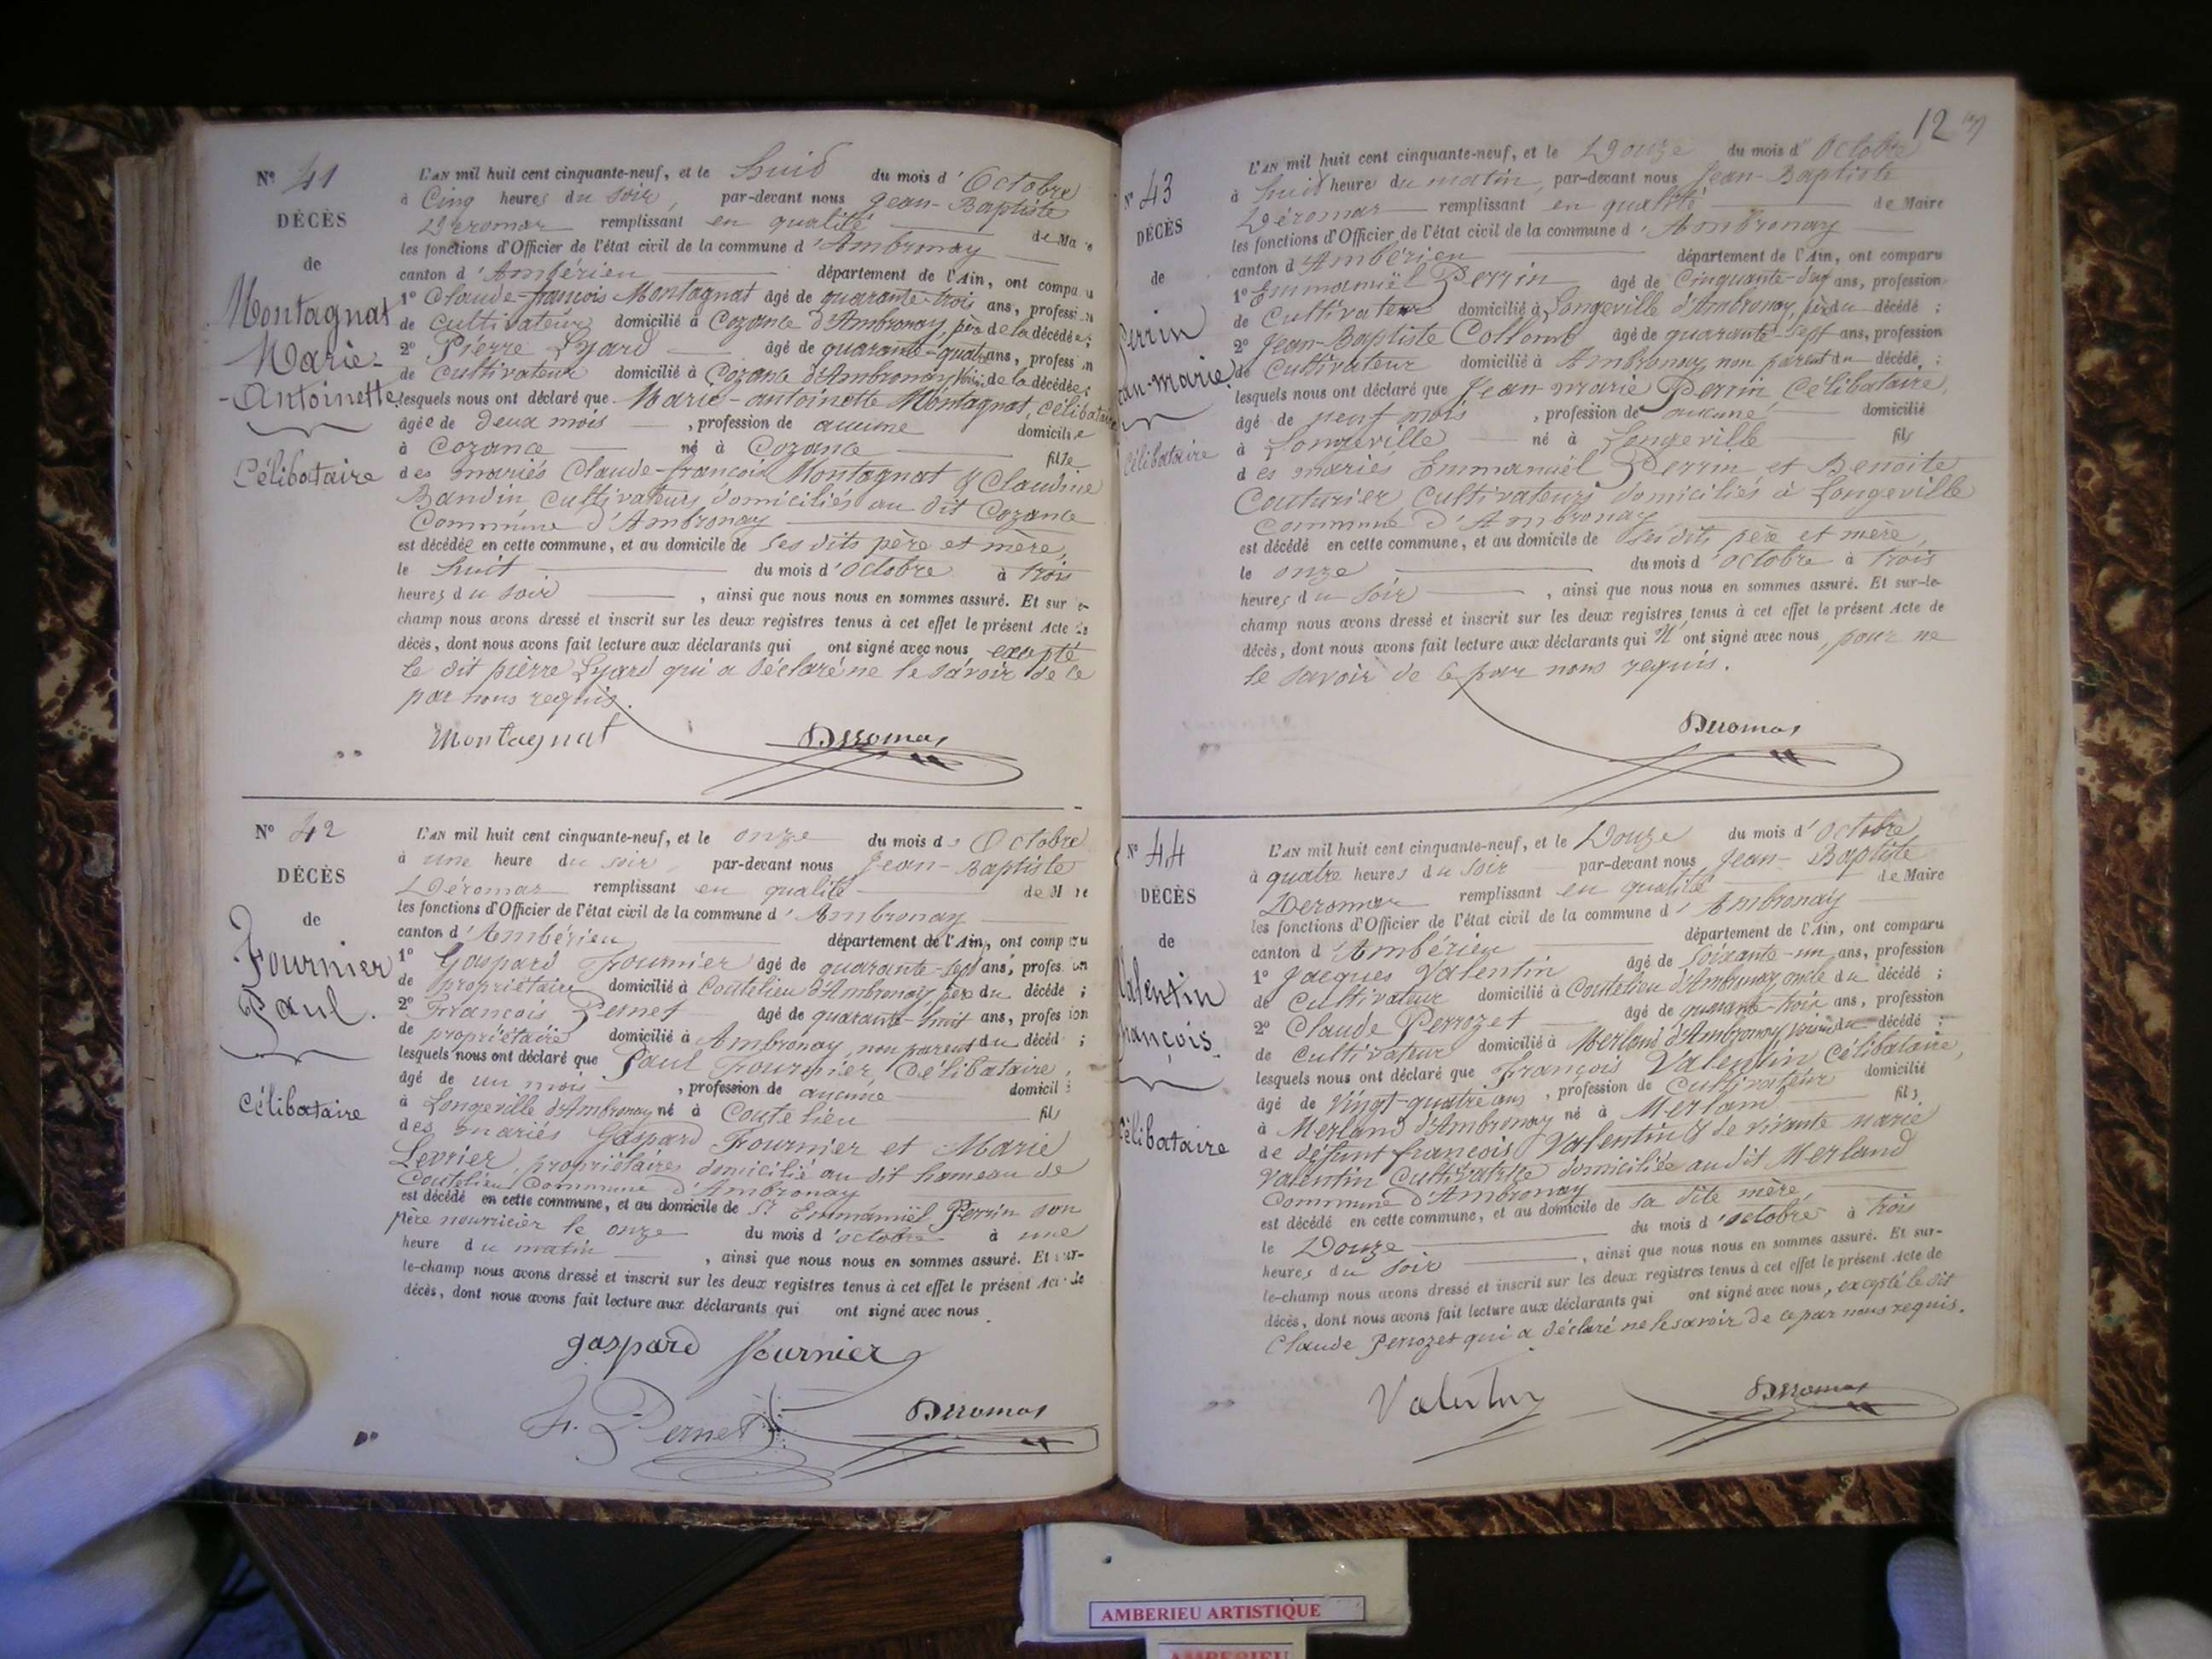 N° 41
DÉCÈS
de
Montagnat
Marie-
-Antoinette
Célibataire
L'AN mil huit cent cinquante-neuf, et le huit du mois d'Octobre
à Cinq heures du soir, par-devant nous Jean-Baptiste
Déromas remplissant en qualité de Maire
les fonctions d'Officier de l'état civil de la commune d'Ambronay
canton d'Ambérieu département de l'Ain, ont comparu
1° Claude-françois Montagnat âgé de quarante-trois ans, profession
de cultivateur domicilié à Cozance d'Ambronay, père de la décédée;
2° Pierre Lyard âgé de quarante-quatre ans, profession
de cultivateur domicilié à Cozance d'Ambronay, voisin de la décédée;
lesquels nous ont déclaré que Marie-antoinette Montagnat, célibataire
âgée de deux mois, profession de aucune domicilié
à Cozance né à Cozance fille
des mariés Claude-françois Montagnat & Claudine
Bandin, cultivateurs domiciliés au dit Cozance
Commune d'Ambronay
est décédée en cette commune, et au domicile de ses dits père et mère,
le huit du mois d'Octobre à trois
heures du soir, ainsi que nous nous en sommes assuré. Et sur-le-
champ nous avons dressé et inscrit sur les deux registres tenus à cet effet le présent Acte de
décès, dont nous avons fait lecture aux déclarants qui ont signé avec nous excepté
le dit pierre Lyard qui a déclaré ne le savoir de ce
par nous requis.
Montagnat Deromas
N° 42
DÉCÈS
de
Fournier
Paul.
Célibataire
L'AN mil huit cent cinquante-neuf, et le onze du mois d'Octobre
à une heure du soir, par-devant nous Jean-Baptiste
Déromas remplissant en qualité de Maire
les fonctions d'Officier de l'état civil de la commune d'Ambronay
canton d'Ambérieu département de l'Ain, ont comparu
1° Gaspard Fournier âgé de quarante-sept ans, profession
de propriétaire domicilié à Coutelieu d'Ambronay, père du décédé;
2° François Pernet âgé de quarante-huit ans, profession
de propriétaire domicilié à Ambronay, non parent du décédé;
lesquels nous ont déclaré que Paul Fournier, Célibataire,
âgé de un mois, profession de aucune domicilié
à Longeville d'Ambronay né à Coutelieu fils
des mariés Gaspard Fournier et Marie
Levrier, propriétaires domicilié au dit hameau de
Coutelieu Commune d'Ambronay
est décédé en cette commune, et au domicile de Sr Emmanuël Perrin son
père nourricier le onze du mois d'octobre à une
heure du matin, ainsi que nous nous en sommes assuré. Et sur-
le-champ nous avons dressé et inscrit sur les deux registres tenus à cet effet le présent Acte de
décès, dont nous avons fait lecture aux déclarants qui ont signé avec nous.
gaspard fournier
F. Pernet Deromas
12
N° 43
DÉCÈS
de
Perrin
Jean-Marie.
Célibataire
L'AN mil huit cent cinquante-neuf, et le Douze du mois d'Octobre
à huit heure du matin, par-devant nous Jean-Baptiste
Déromas remplissant en qualité de Maire
les fonctions d'Officier de l'état civil de la commune d'Ambronay
canton d'Ambérieu département de l'Ain, ont comparu
1° Emmanuël Perrin âgé de Cinquante-deux ans, profession
de Cultivateur domicilié à Longeville d'Ambronay, père du décédé;
2° Jean-Baptiste Collomb âgé de quarante-sept ans, profession
de Cultivateur domicilié à Ambronay, non parent du décédé;
lesquels nous ont déclaré que Jean-marie Perrin, Célibataire,
âgé de neuf mois, profession de aucune domicilié
à Longeville né à Longeville fils
des mariés Emmanuël Perrin et Benoite
Couturier Cultivateurs domiciliés à Longeville
Commune d'Ambronay
est décédé en cette commune, et au domicile de ses dits père et mère,
le onze du mois d'octobre à trois
heures du soir, ainsi que nous nous en sommes assuré. Et sur-le-
champ nous avons dressé et inscrit sur les deux registres tenus à cet effet le présent Acte de
décès, dont nous avons fait lecture aux déclarants qui n'ont signé avec nous, pour ne
le savoir de ce par nous requis.
Deromas
N° 44
DÉCÈS
de
Valentin
françois.
Célibataire
L'AN mil huit cent cinquante-neuf, et le Douze du mois d'Octobre
à quatre heures du soir par-devant nous Jean-Baptiste
Deromas remplissant en qualité de Maire
les fonctions d'Officier de l'état civil de la commune d'Ambronay
canton d'Ambérieu département de l'Ain, ont comparu
1° Jacques Valentin âgé de soixante-un ans, profession
de Cultivateur domicilié à Coutelieu d'Ambronay, oncle du décédé;
2° Claude Perrozet âgé de quarante-trois ans, profession
de cultivateur domicilié à Merland d'Ambronay, voisin du décédé;
lesquels nous ont déclaré que François Valentin Célibataire,
âgé de vingt-quatre ans, profession de Cultivateur domicilié
à Merland d'Ambronay né à Merland fils
de défunt françois Valentin & de vivante marie
Valentin Cultivatrice domiciliée au dit Merland
Commune d'Ambronay
est décédé en cette commune, et au domicile de sa dite mère,
le Douze du mois d'octobre à trois
heures du soir, ainsi que nous nous en sommes assuré. Et sur-
le-champ nous avons dressé et inscrit sur les deux registres tenus à cet effet le présent Acte de
décès, dont nous avons fait lecture aux déclarants qui ont signé avec nous, excepté le dit
Claude Perrozet qui a déclaré ne le savoir de ce par nous requis.
Valentin Deromas
AMBERIEU ARTISTIQUE
AMBERIEU